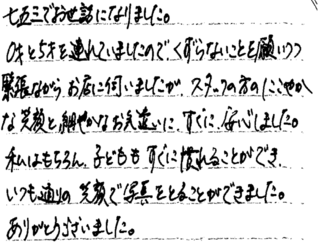 七五三でお世話になりました。
0才と5才を連れていましたので、くずらないことを願いつつ
緊張ながらお店に伺いましたが、スタッフの方のにこやか
な笑顔と細やかなお気遣いに、すぐに安心しました。
私はもちろん、子どももすぐに慣れることができ、
いつも通りの笑顔で写真をとることができました。
ありがとうございました。